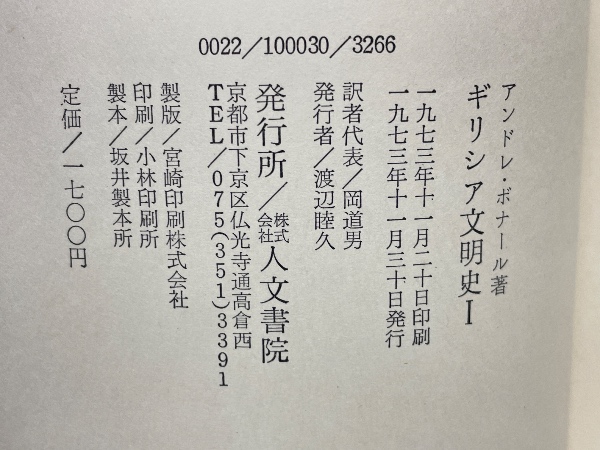 0022/100030/3266
アンドレ・ボナール著
ギリシア文明史Ⅰ
一九七三年十一月二十日印刷
一九七三年十一月三十日発行
訳者代表/岡道男
発行者/渡辺睦久
発行所/株式会社人文書院
京都市下京区仏光寺通高倉西
TEL/075(351)3391
製版/宮崎印刷株式会社
印刷/小林印刷所
製本/坂井製本所
定価/一七〇〇円